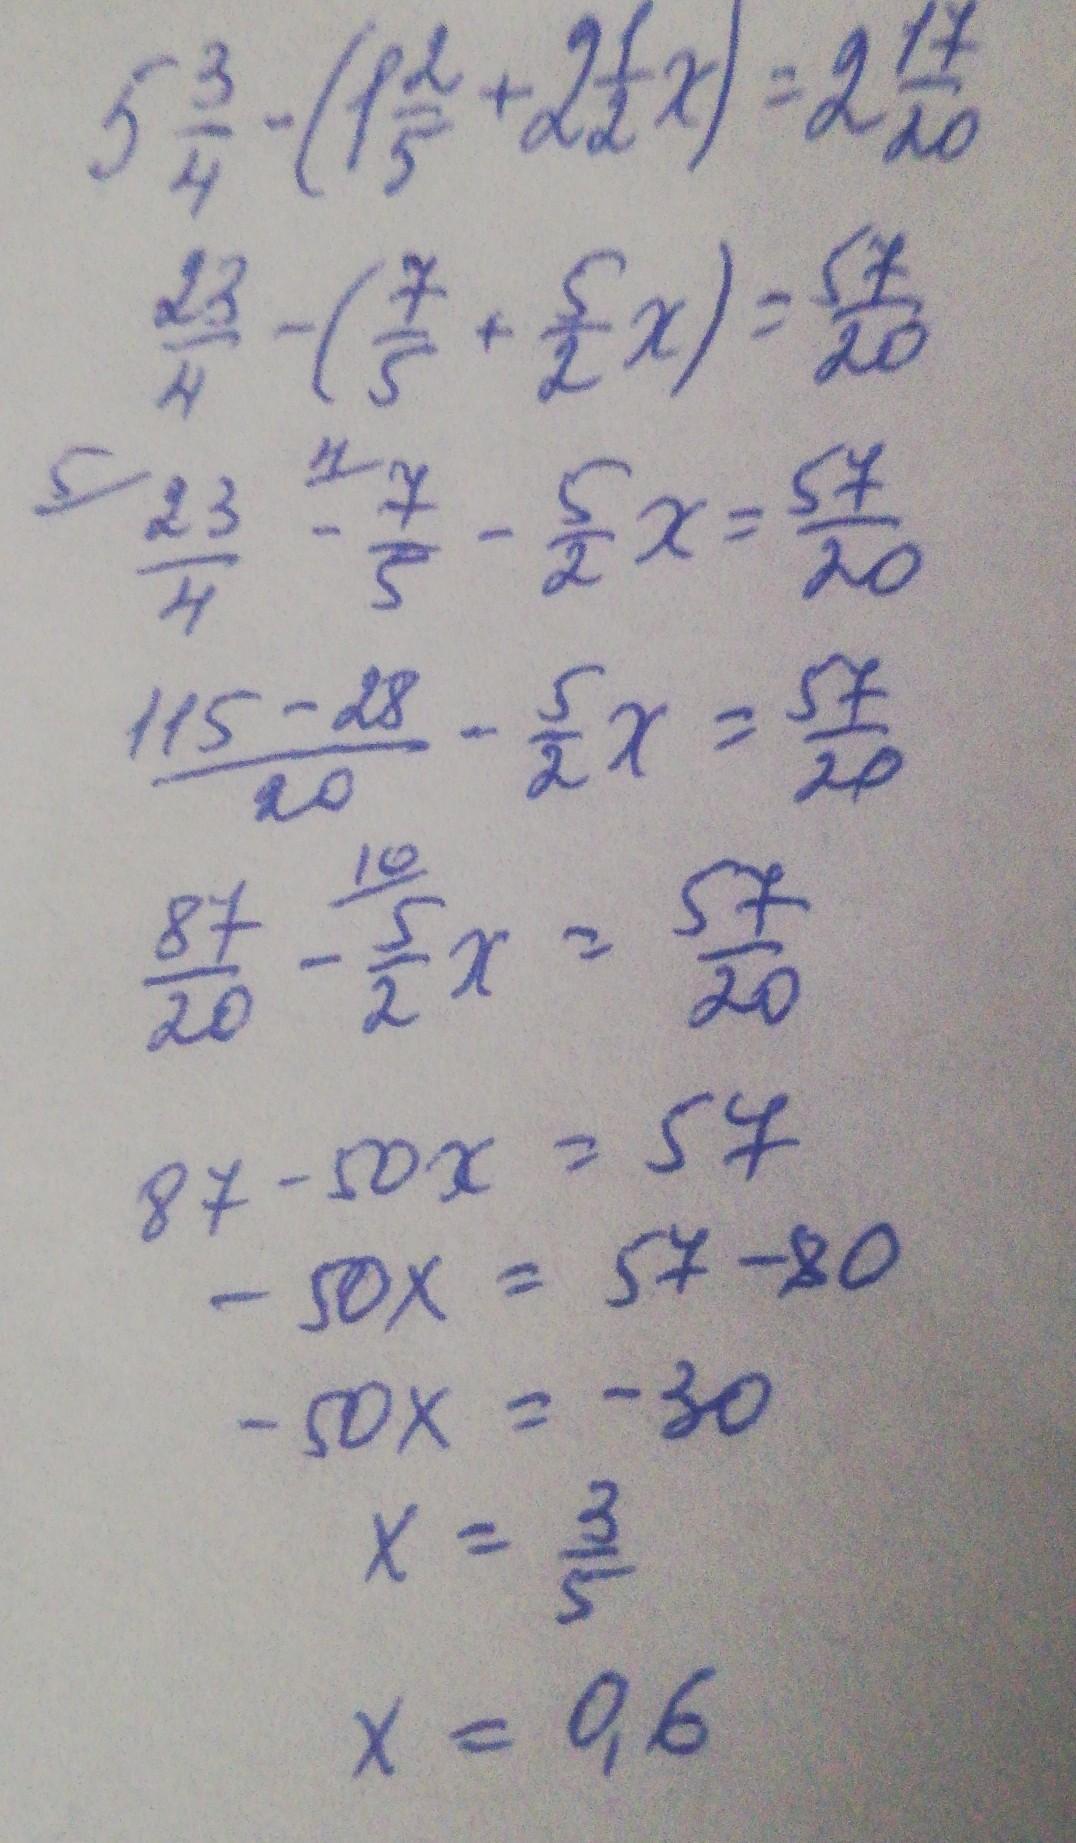 5 3/4 - (1 2/5 + 2 1/2 x) = 2 17/20
23/4 - (7/5 + 5/2 x) = 57/20
5/ 23/4 - 4/ 7/5 - 5/2 x = 57/20
115 - 28/20 - 5/2 x = 57/20
87/20 - 10/ 5/2 x = 57/20
87 - 50x = 57
- 50x = 57 - 80
- 50x = - 30
x = 3/5
x = 0,6